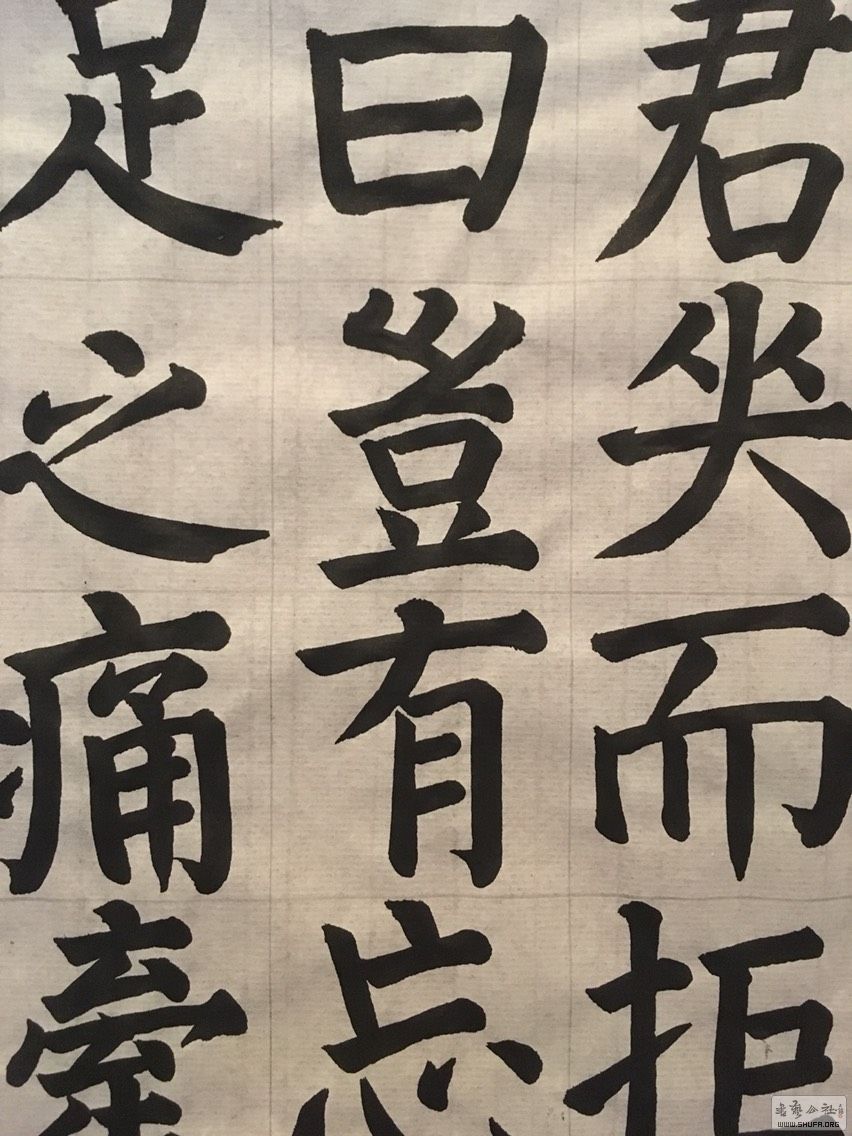 君夾而拒
曰豈有忘
足之痛牽
書藝公社
WWW.SHUFA.ORG